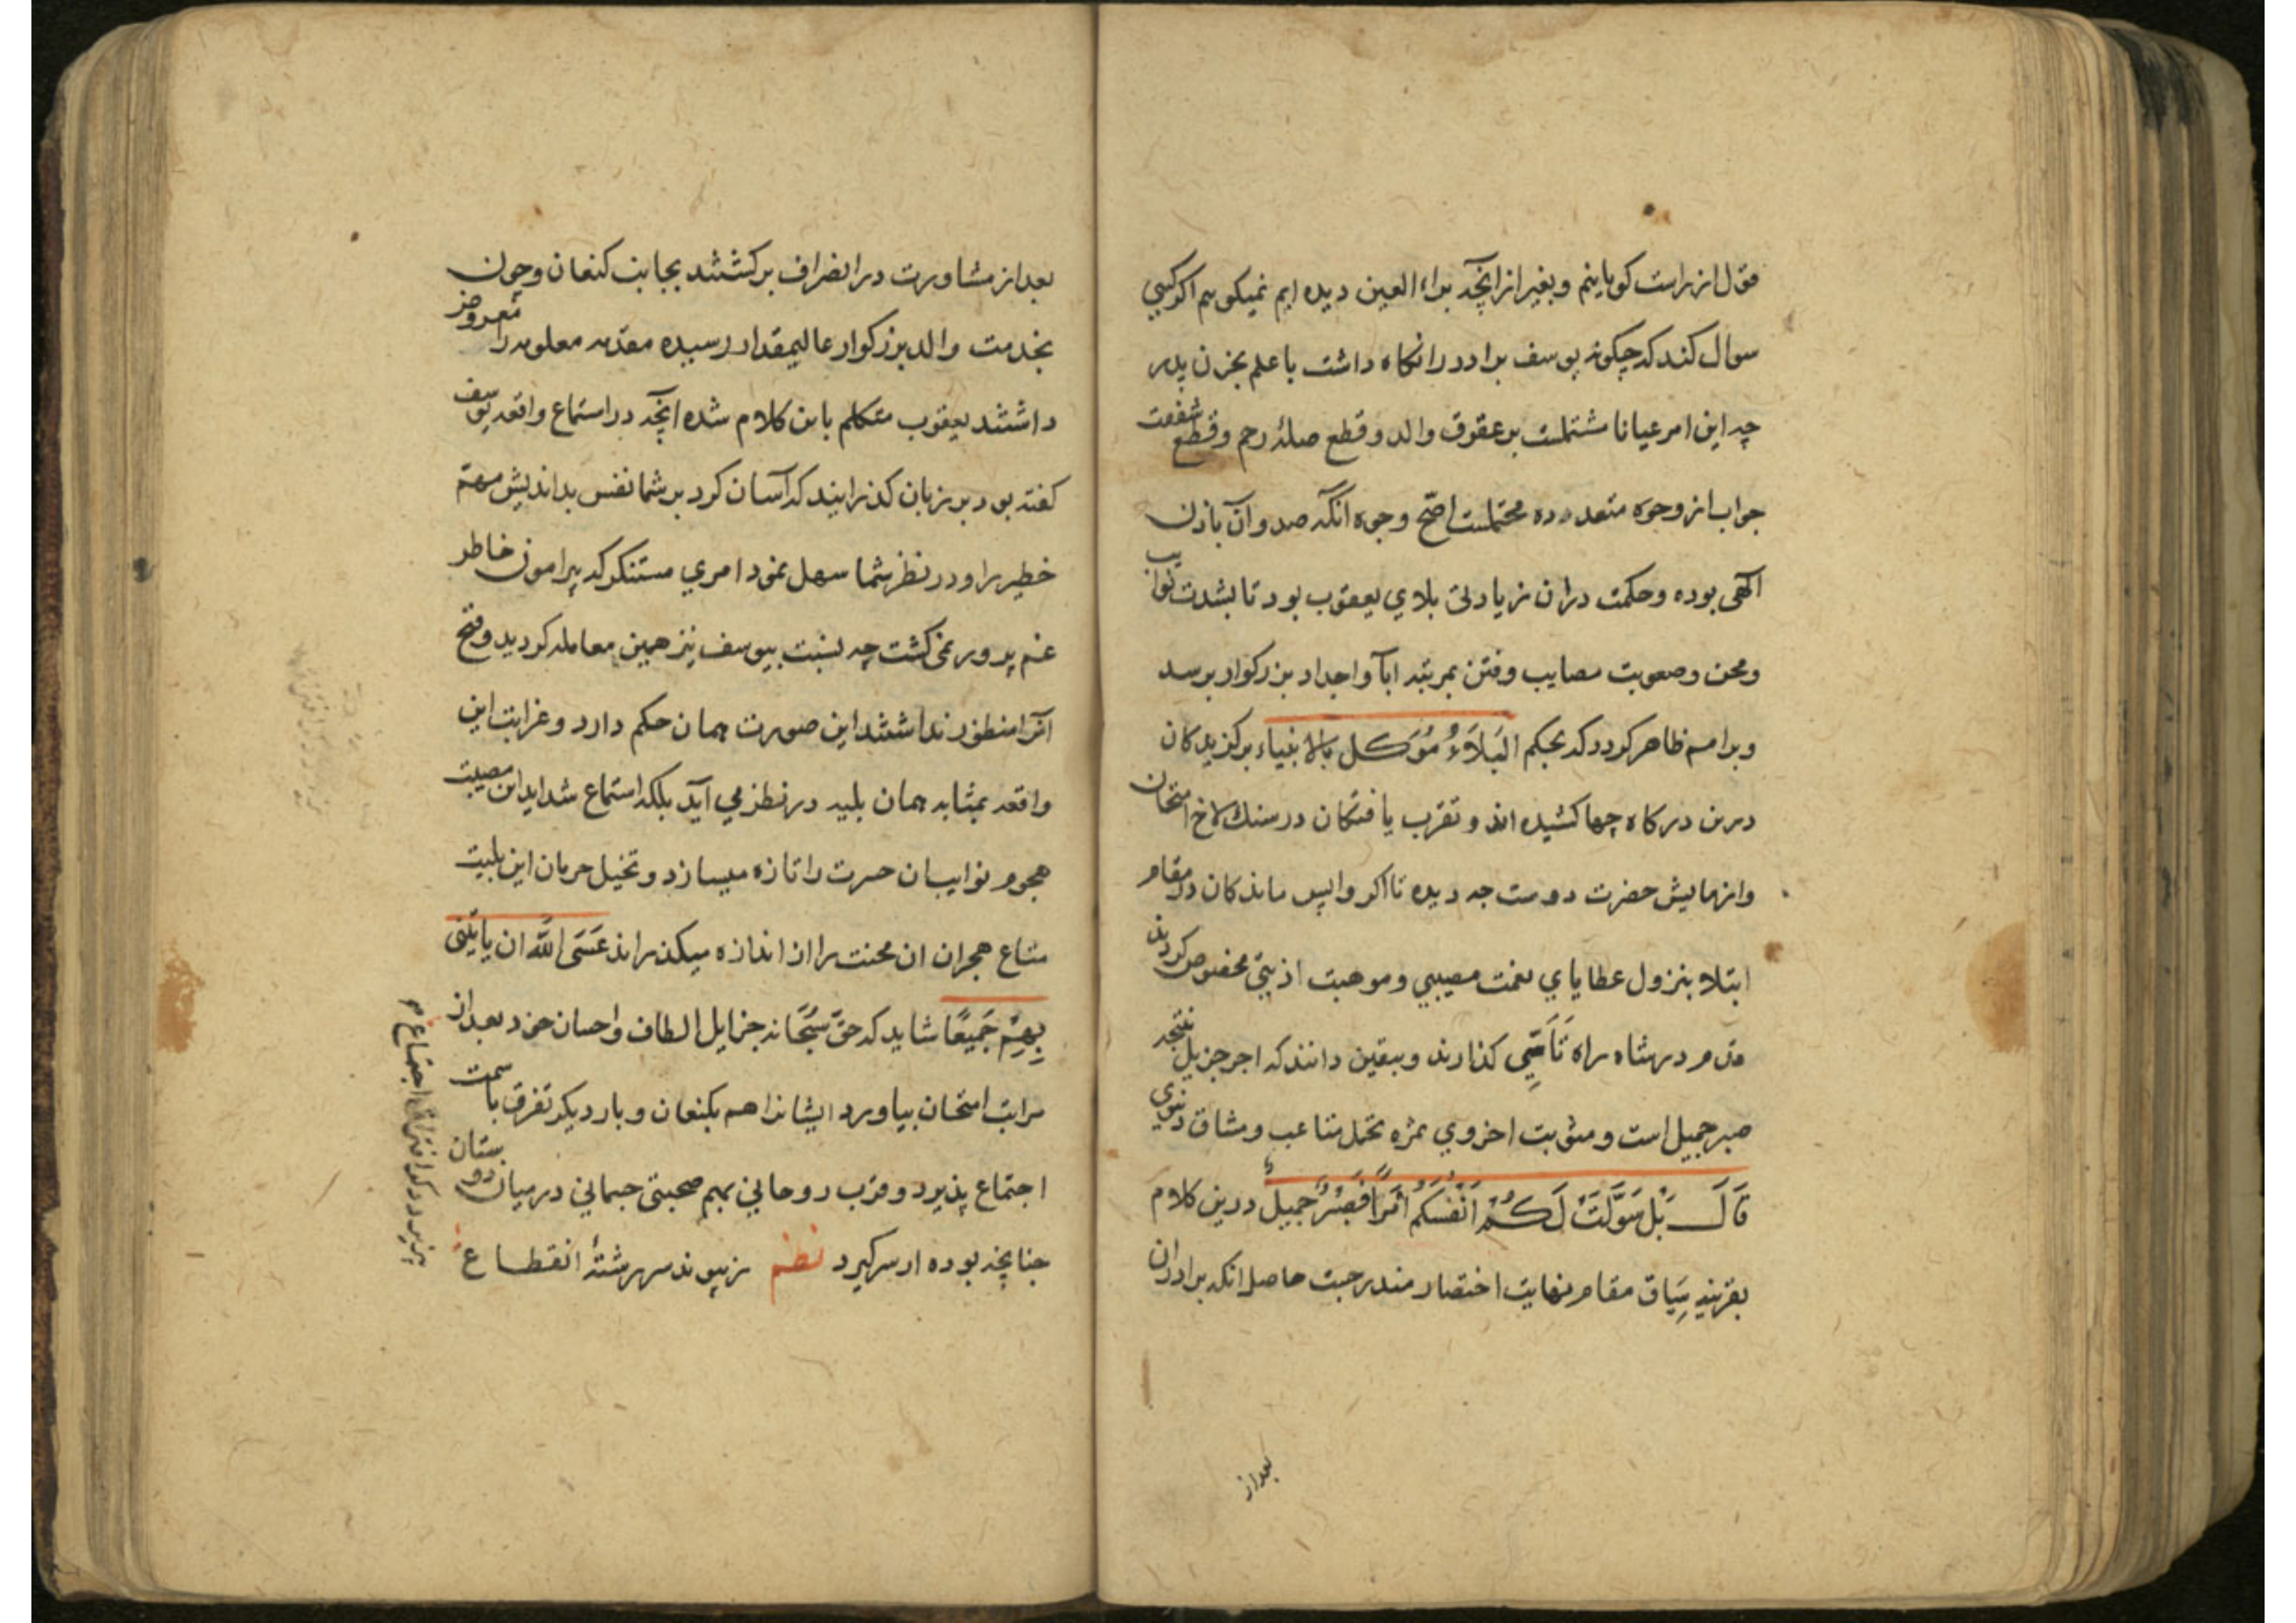 قول از راست كویانیم و بغیر از انچه براء العین دیده ایم نمیكوییم اكر كسی
سوال كند كه چكونه یوسف برادر را نكاه داشت با علم بحزن پدر
چه این امر عیانا مشتملست بر عقوق والد و قطع صلۀ رحم و قطع شفقت
جواب از وجوه متعدده محتملست اصح وجوه آنكه صدور آن باذن
آلهی بوده و حكمت دران زیادتی بلای یعقوب بود تا بشدت نوایب
و محن و صعوبت مصایب و فتن بمرتبۀ ابآ و اجداد بزركوار برسد
و برامم ظاهر كردد كه بحكم البَلاَءُ مُوَكل بالانبیاء بركزیدكان
درین دركاه چها كشیده اند و تقرب یافتكان در سنك لاخ امتحان
و ازمایش حضرت دوست چه دیده تا اكر واپس ماندكان در مقام
ابتلا بنزول عطایای نعمت مصیبی و موهبت اذیتی مخصوص كردند
قدم در شاه راه تَاَسّی كذارند و بیقین دانند كه اجر جزیل نتیجه
صبر جمیل است و مثوبت اخروی ثمره تحمل متاعب و مشاق دنیوی
قَالَ بَلْ سَوَّلَتْ لَكُمْ اَنْفُسُكُمْ اَمْرًا فَصَبْرٌ جمیلٌ درین كلام
بقرینه سِیَاق مقام نهایت اختصار مندرجست حاصل انكه برادران
بعد از
بعد از مشاورت در انصراف بركشتند بجانب كنعان و چون
بخدمت والد بزركوار عالیمقدار رسیده مقدمه معلومه را معروض
داشتند یعقوب متكلم باین كلام شده انچه در استماع واقعه یوسف
كفته بود بر زبان كذرانیند كه آسان كرد بر شما نفس بد اندیش مهم
خطیر را و در نظر شما سهل نمود امری مستنكر كه پیرامون خاطر
غم پرور نمی كشت چه نسبت بیوسف نیز همین معامله كردید و قبح
آنرا منظور نداشتند این صورت همان حكم دارد و غرابت این
واقعه بمثابه همان بلیه در نظر می آید بلكه استماع شداید این مصیبت
هجوم نوایب ان حسرت را تازه میسازد و تخیل حرمان این بلیت
متاع هجران ان محنت را از اندازه میكذراند عَسَی اللّٰه ان یاتِیَنی
بِهِمْ جَمیعًا شاید كه حقّ سُبْحَانه جزایل الطاف و احسان خود بعد از
مراتب امتحان بیاورد ایشانرا هم بكنعان و بار دیكر تفرق با سمت
اجتماع پذیرد و قرب روحانی بهم صحبتی جسمانی در میان دوستان
چنانچه بوده از سر كیرد نظم ز پیوند سر رشتۀ انقطاع